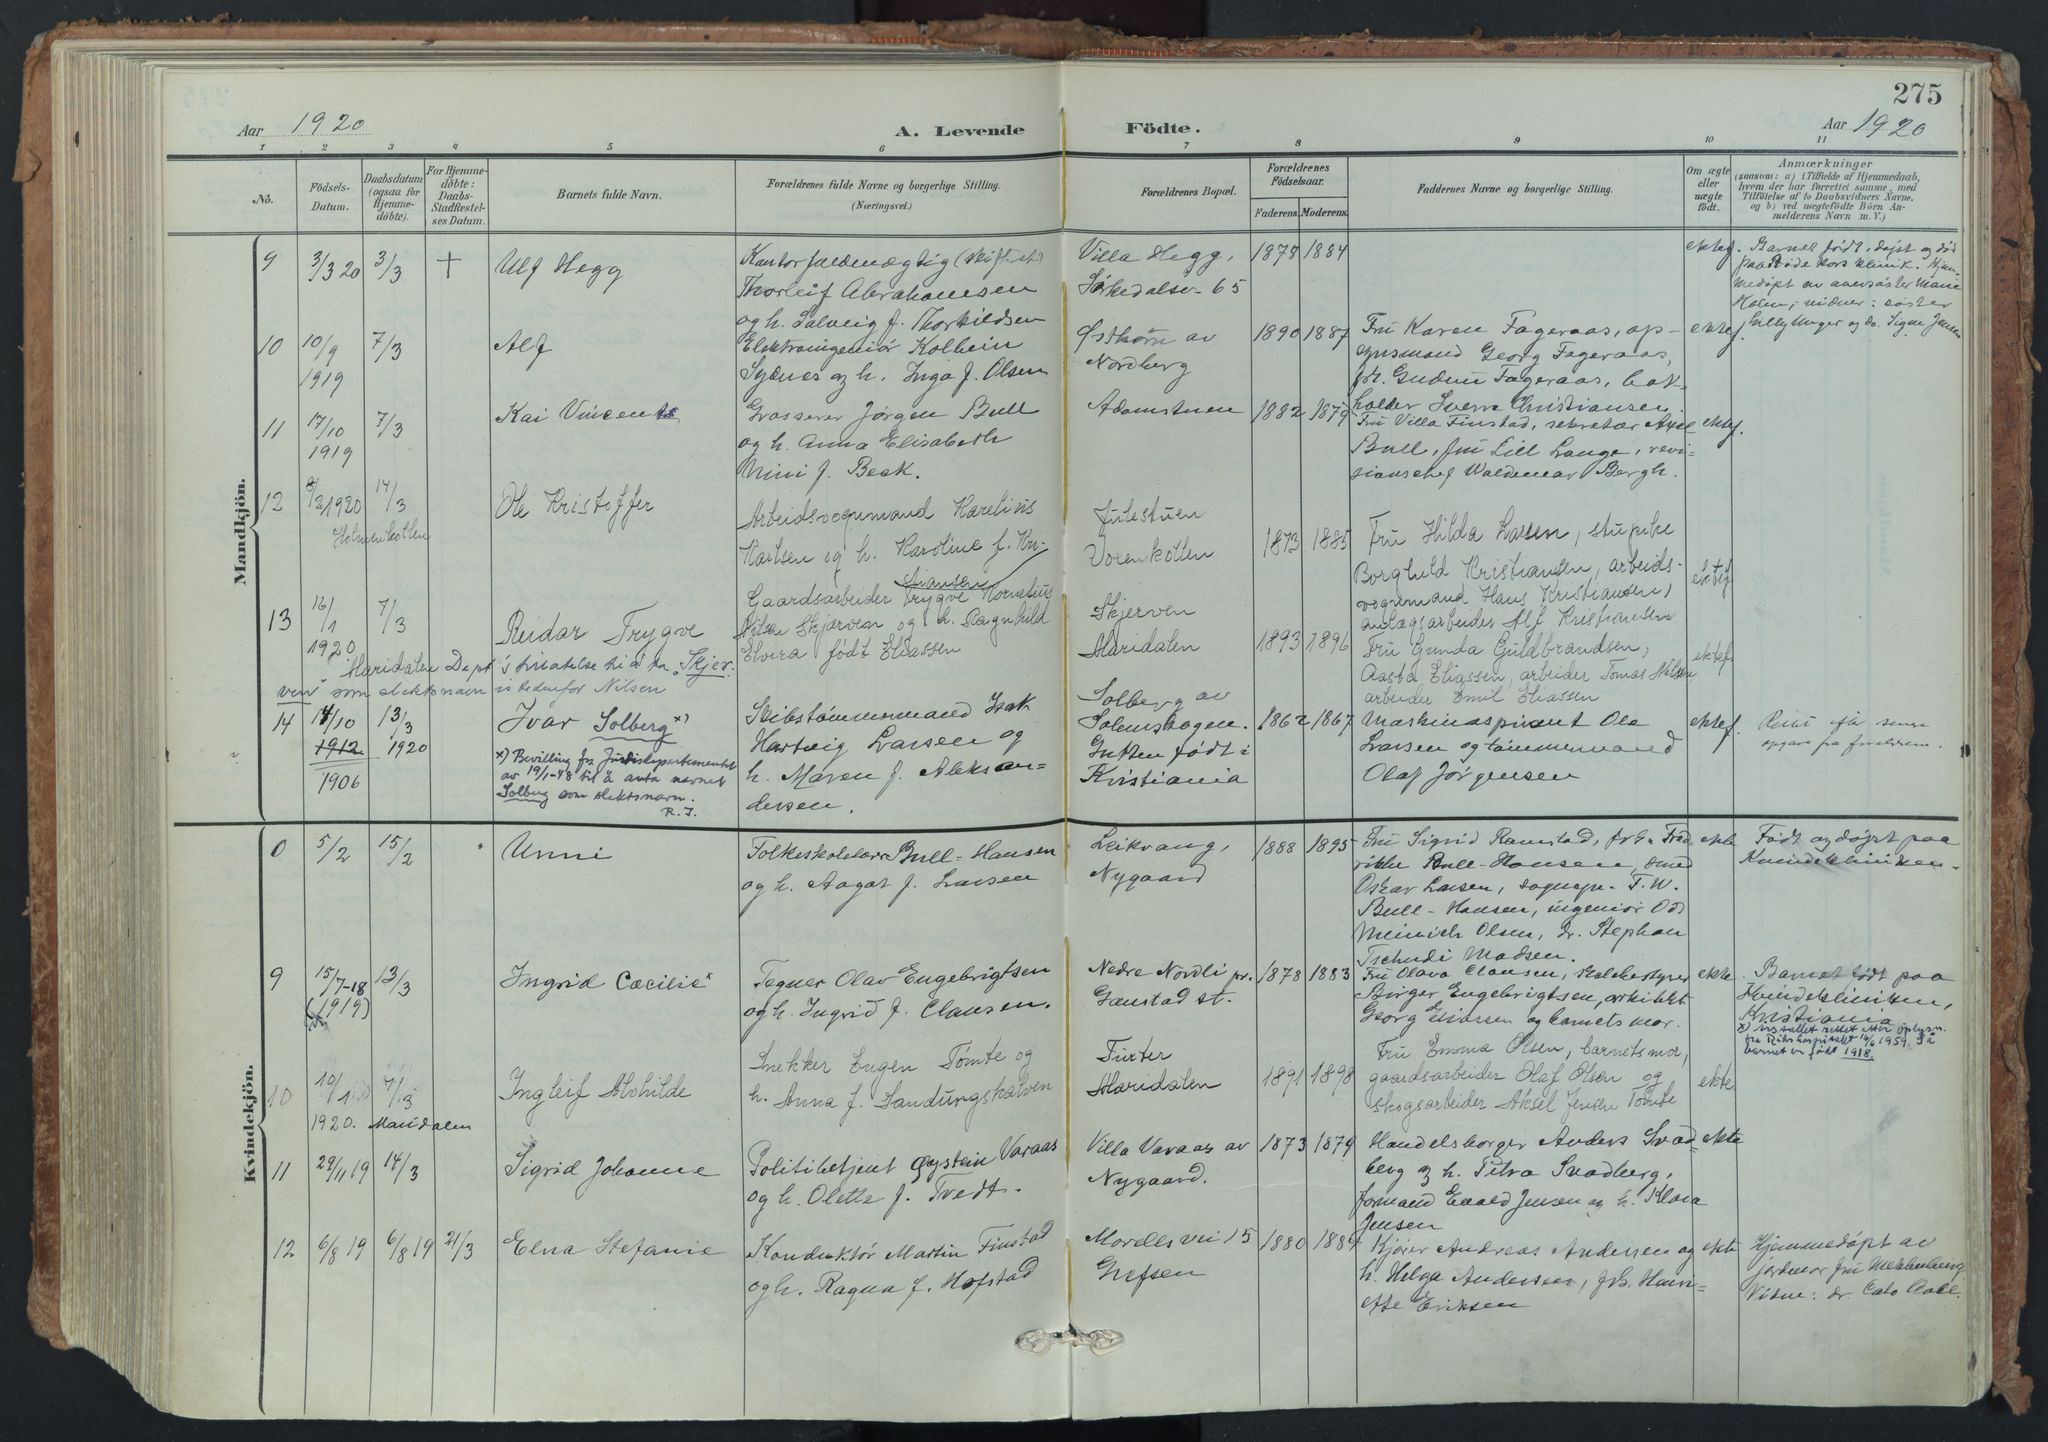 275
Aar 1920
A. Levende Födte.
Aar 1920
1 2 3 4 5 6 7 8 9 10 11
No.
Födsels-Datum.
Daabsdatum (ogsaa for Hjemme-döbte).
For Hjemme-döbte: Daabs-Stadfæstel-ses Datum.
Barnets fulde Navn.
Forældrenes fulde Navne og borgerlige Stilling.
(Næringsvei.)
Forældrenes Bopæl.
Forældrenes Födselsaar.
Faderens. Moderens.
Faddernes Navne og borgerlige Stilling.
Om ægte eller uægte født.
Anmærkninger
(saasom: a) i Tilfælde af Hjemmedaab,
hvem der har forrettet samme, med
Tilföielse af to Daabsvidners Navne,
og b) ved uægtefödte Börn An-
melderens Navn m. V.)
Mandkjön.
9 3/3 20 3/3 + Ulf Hegg
Kontorfuldmægtig
Thorleif Abrahamsen
og h. Solveig f. Thorkildsen
Villa Hegg,
Sørkedalsv. 65
1878 1884
ektef.
Barnet født, døpt og død
paa Røde Kors klinik. Hjem-
medøpt av oversøster Marie
Holm; vidner: søster
Lilly Unger og do. Signe Jensen
10 10/9 1919 7/3 Alf
Elektroingeniør Kolbein
Sydnes og h. Inga f. Olsen
Østhorn av
Nordberg
1890 1887
Fru Karen Fageraas, op-
synsmand Georg Fageraas,
frk. Gudrun Fageraas, bok-
holder Sverre Christiansen.
ektef.
11 17/10 1919 7/3 Kai Vincents
Grosserer Jørgen Bull
og h. Anna Elisabeth
Mimi f. Beck.
Adamstuen
1882 1879
Fru Villa Finstad, sekretær Axel
Bull, fru Lill Lange, revi-
sionschef Waldemar Bergh.
ektef.
12 8/2 1920 14/3 Ole Kristoffer
Holmenkollen
Arbeidsvognmand Karelius
Karlsen og h. Karoline f. Kri-
stiansen
Julestuen
Voxenkollen
1873 1885
Fru Hilda Larsen, stupike
Borghild Kristiansen, arbeids-
vognmand Hans Kristiansen,
anlægsarbeider Alf Kristiansen
ektef
13 16/1 1920 7/3 Reidar Trygve
Gaardsarbeider Trygve Kornelius
Nilsen Skjerven og h. Ragnhild
Elvira født Eliassen
Skjerven
Maridalen
1893 1896
Fru Gunda Guldbrandsen,
Aasta Eliassen, arbeider Tomas Nilsen
arbeider Emil Eliassen
ektef.
Maridalen Dept's tillatelse til å ta "Skjer-
ven" som slektsnavn istedenfor Nilsen
14 14/10 1912 1906 13/3 1920 Ivar Solberg x)
x) Bevilling fra Justisdepartementet
av 19/1-48 til å anta navnet
Solberg som slektsnavn.
R. J.
Skibstømmermand Isak
Hartvig Larsen og
h. Maren f. Aleksan-
dersen.
Solberg av
Solemskogen.
Gutten født i
Kristiania
1862 1867
Maskinaspirant Ole
Larsen og tømmermand
Olaf Jørgensen
ektef.
opgave fra forældrene.
Kvindekjön.
8 5/2 15/2 Unni
Folkeskolelærer Bull-Hansen
og h. Aagot f. Larsen
Leikvang,
Nygaard
1888 1895
Fru Sigrid Ramstad, frk. Fred-
rikke Bull-Hansen, smed
Oskar Larsen, sognepr. F. W.
Bull-Hansen, ingeniør Odd
Meinich Olsen, dr. Stephan
Tschudi Madsen.
ekte
Født og døpt paa
Kvindeklinikken.
9 15/7-18 (1919) 13/3 Ingrid Cæcilie x
Tegner Olav Engebrigtsen
og h. Ingrid f. Clausen.
Nedre Nordli pr.
Gaustad st.
1878 1883
Fru Olava Clausen, skolebestyrer
Birger Engebrigtsen, arkitekt
Georg Eliassen og barnets mor.
ekte
Barnet født paa
Kvindeklinikken,
Kristiania
x) Årstallet rettet etter opplysn.
fra Rikshospitalet 10/6 1959. Så
barnet er født 1918.
10 10/1 1920. 7/3 Maridalen Ingleif Alvhilde
Snekker Eugen Tømte og
h. Anna f. Sandungskalven
Turter
Maridalen
1891 1898
Fru Emma Olsen, barnets mor,
gaardsarbeider Olaf Olsen og
skogsarbeider Aksel Tømte
ekte
11 29/11 19 14/3 Sigrid Johanne
Politibetjent Øystein Varaas
og h. Olette f. Tvedt.
Villa Varaas av
Nygaard.
1873 1879
Handelsborger Anders Svad-
berg og h. Petra Svadberg,
formand Evald Jensen og h. Klara
Jensen
ekte
12 6/8 19 6/8 19 21/3 Elna Stefanie
Konduktør Martin Finstad
og h. Ragna f. Hofstad
Morells vei 15
Grefsen
1880 1884
Kjører Andreas Andersen og
h. Helga Andersen, frk. Henri-
ette Eriksen
ekte
Hjemmedøpt av
jordmor fru Mekkelberg
Vidne: dr. Cato Aall.